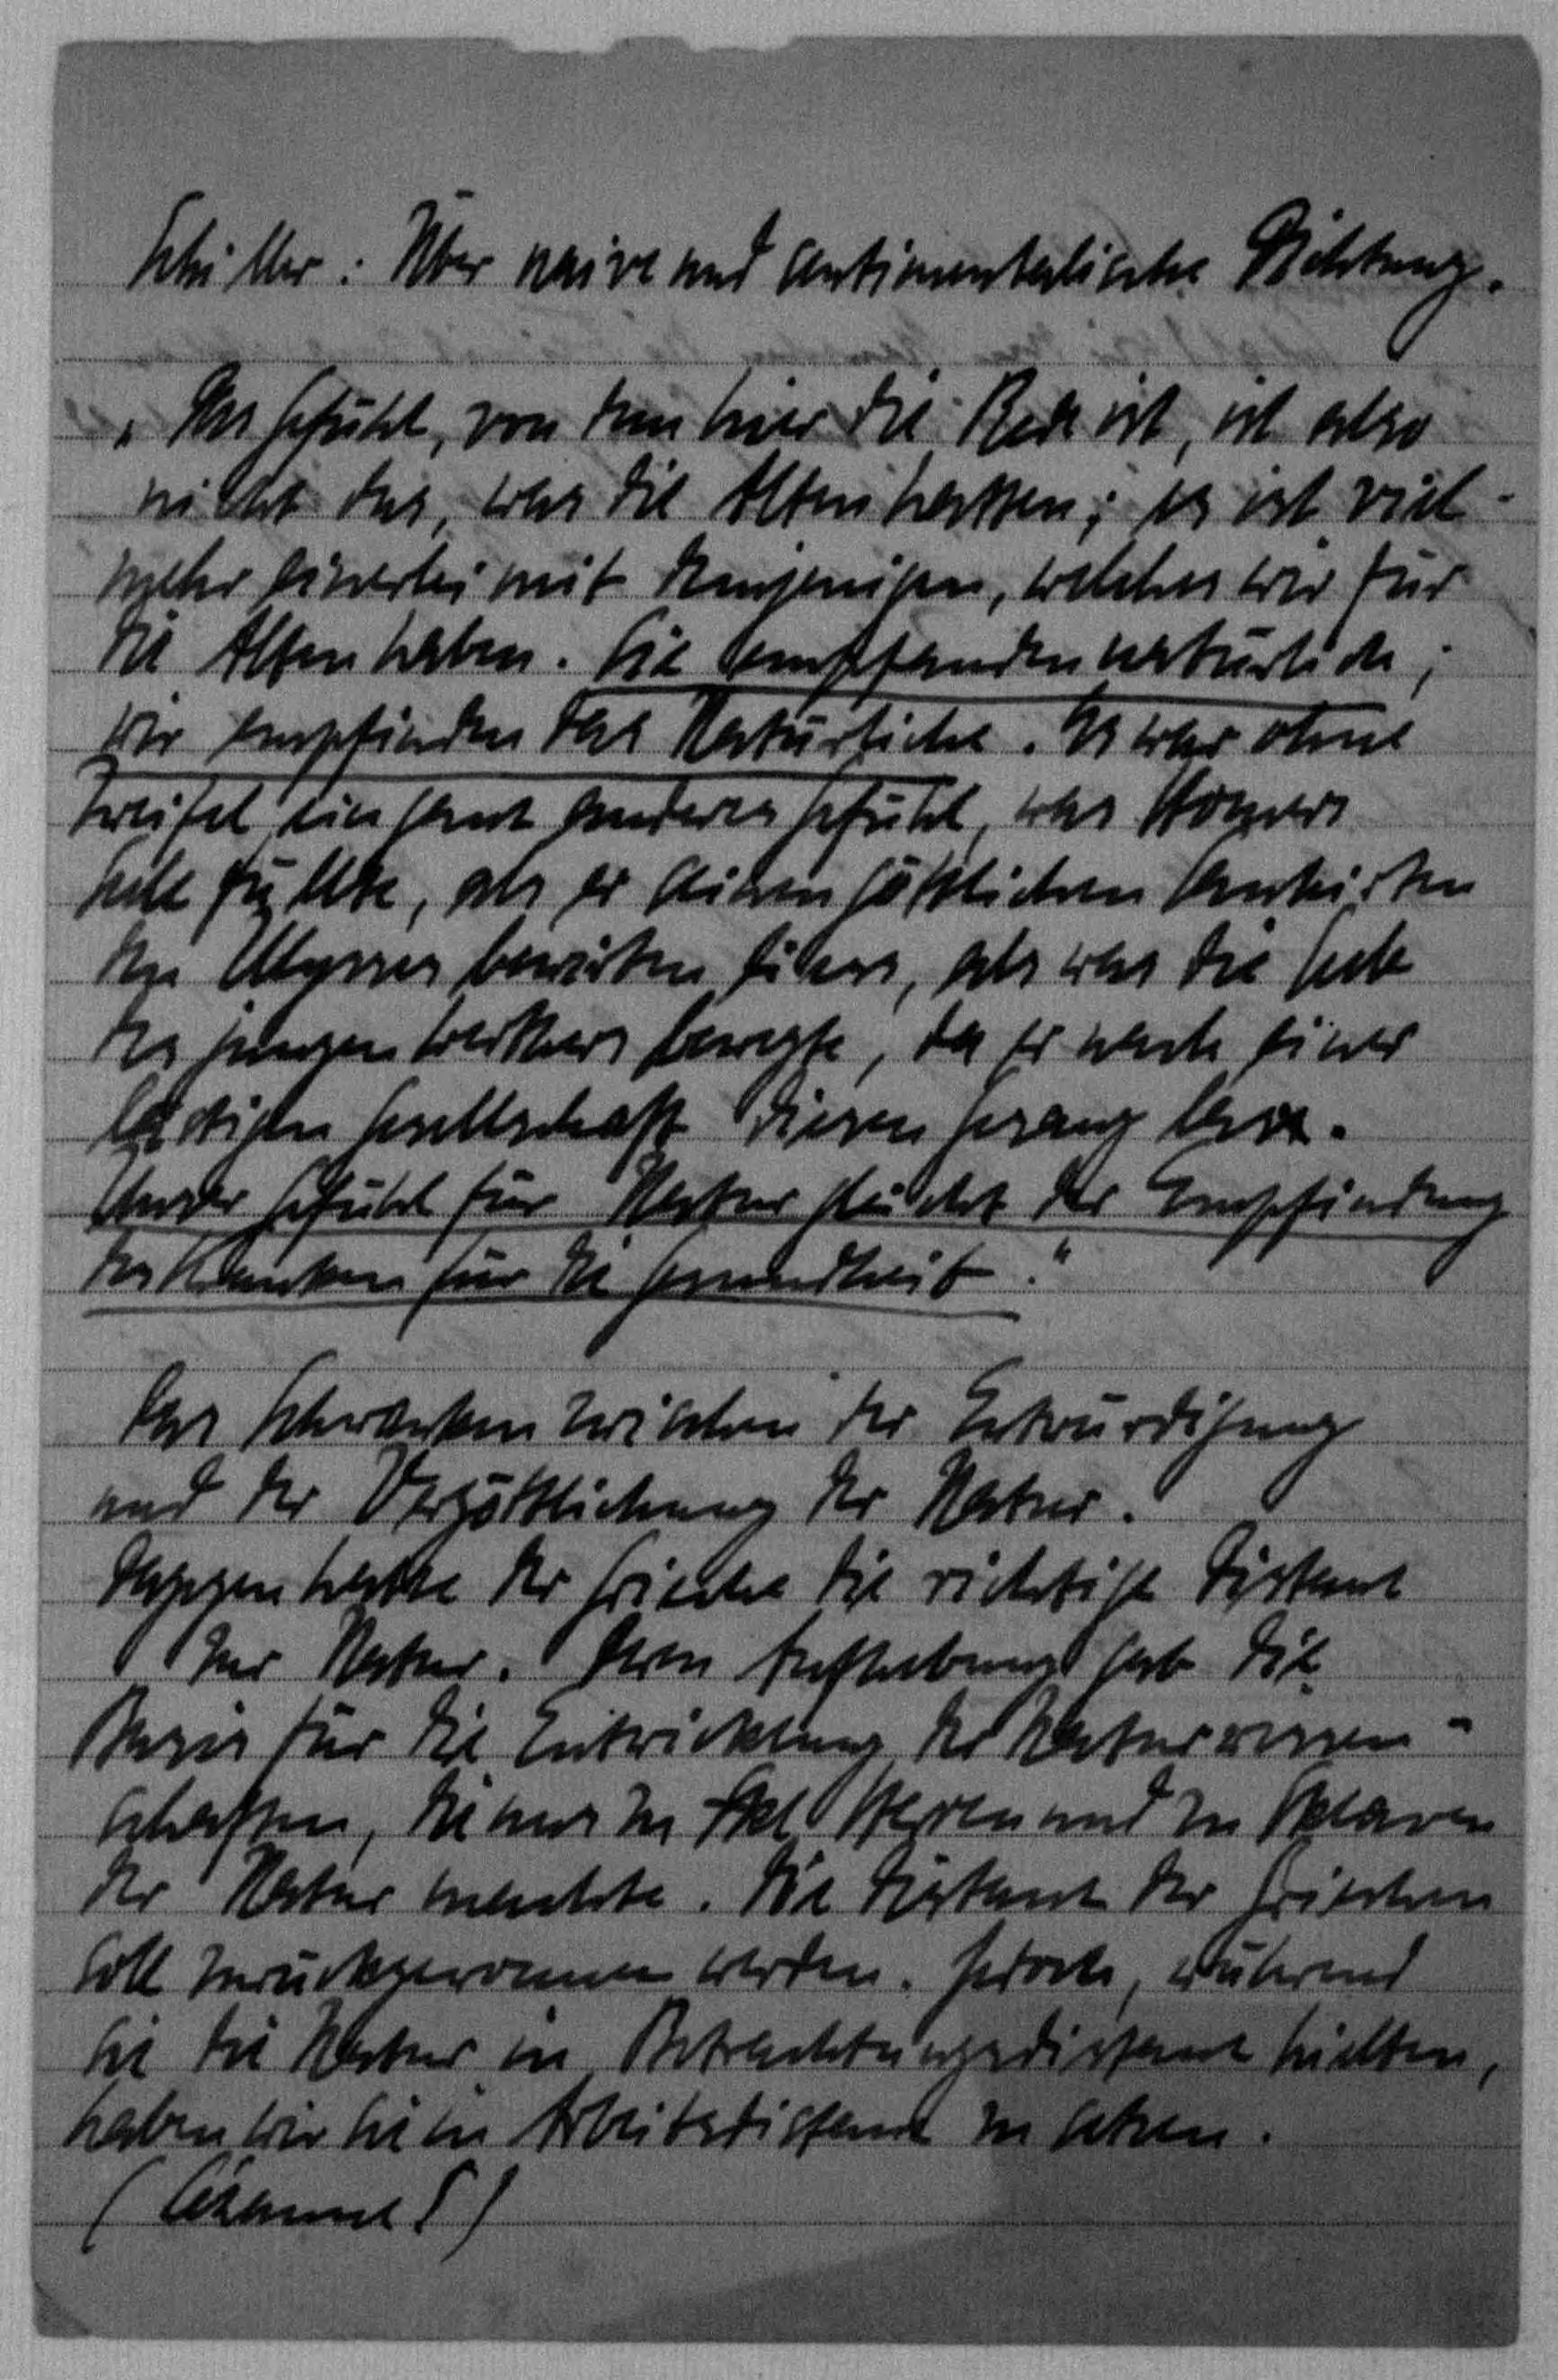 Schiller: Über naive und sentimentalische Dichtung.
„Das Gefühl, von dem hier die Rede ist, ist also
nicht das, was die Alten hatten; es ist viel-
mehr einerlei mit demjenigen, welches wir für
die Alten haben. Sie empfanden natürlich;
wir empfinden das Natürliche. Es war ohne
Zweifel ein ganz anderes Gefühl, was Homers
Seele füllte, als er seinen göttlichen Sauhirten
den Ulysses bewirten liess, als was die Seele
des jungen Werthers bewegte, da er nach einer
lästigen Gesellschaft diesen Gesang las.
Unser Gefühl für Natur gleicht der Empfindung
des Kranken für die Gesundheit."
Das Schwanken zwischen der Entwürdigung
und der Vergöttlichung der Natur.
Dagegen hatte der Grieche die richtige Distanz
zur Natur. Deren Aufhebung gab die
Basis für die Entwicklung der Naturwissen-
schaften, die uns zu Herren und zu Sklaven
der Natur machte. Die Distanz der Griechen
soll zurückgewonnen werden. Jedoch, während
sie die Natur in Betrachtungsdistanz hielten,
haben wir sie in Arbeitsdistanz zu sehen.
(Cézanne!)